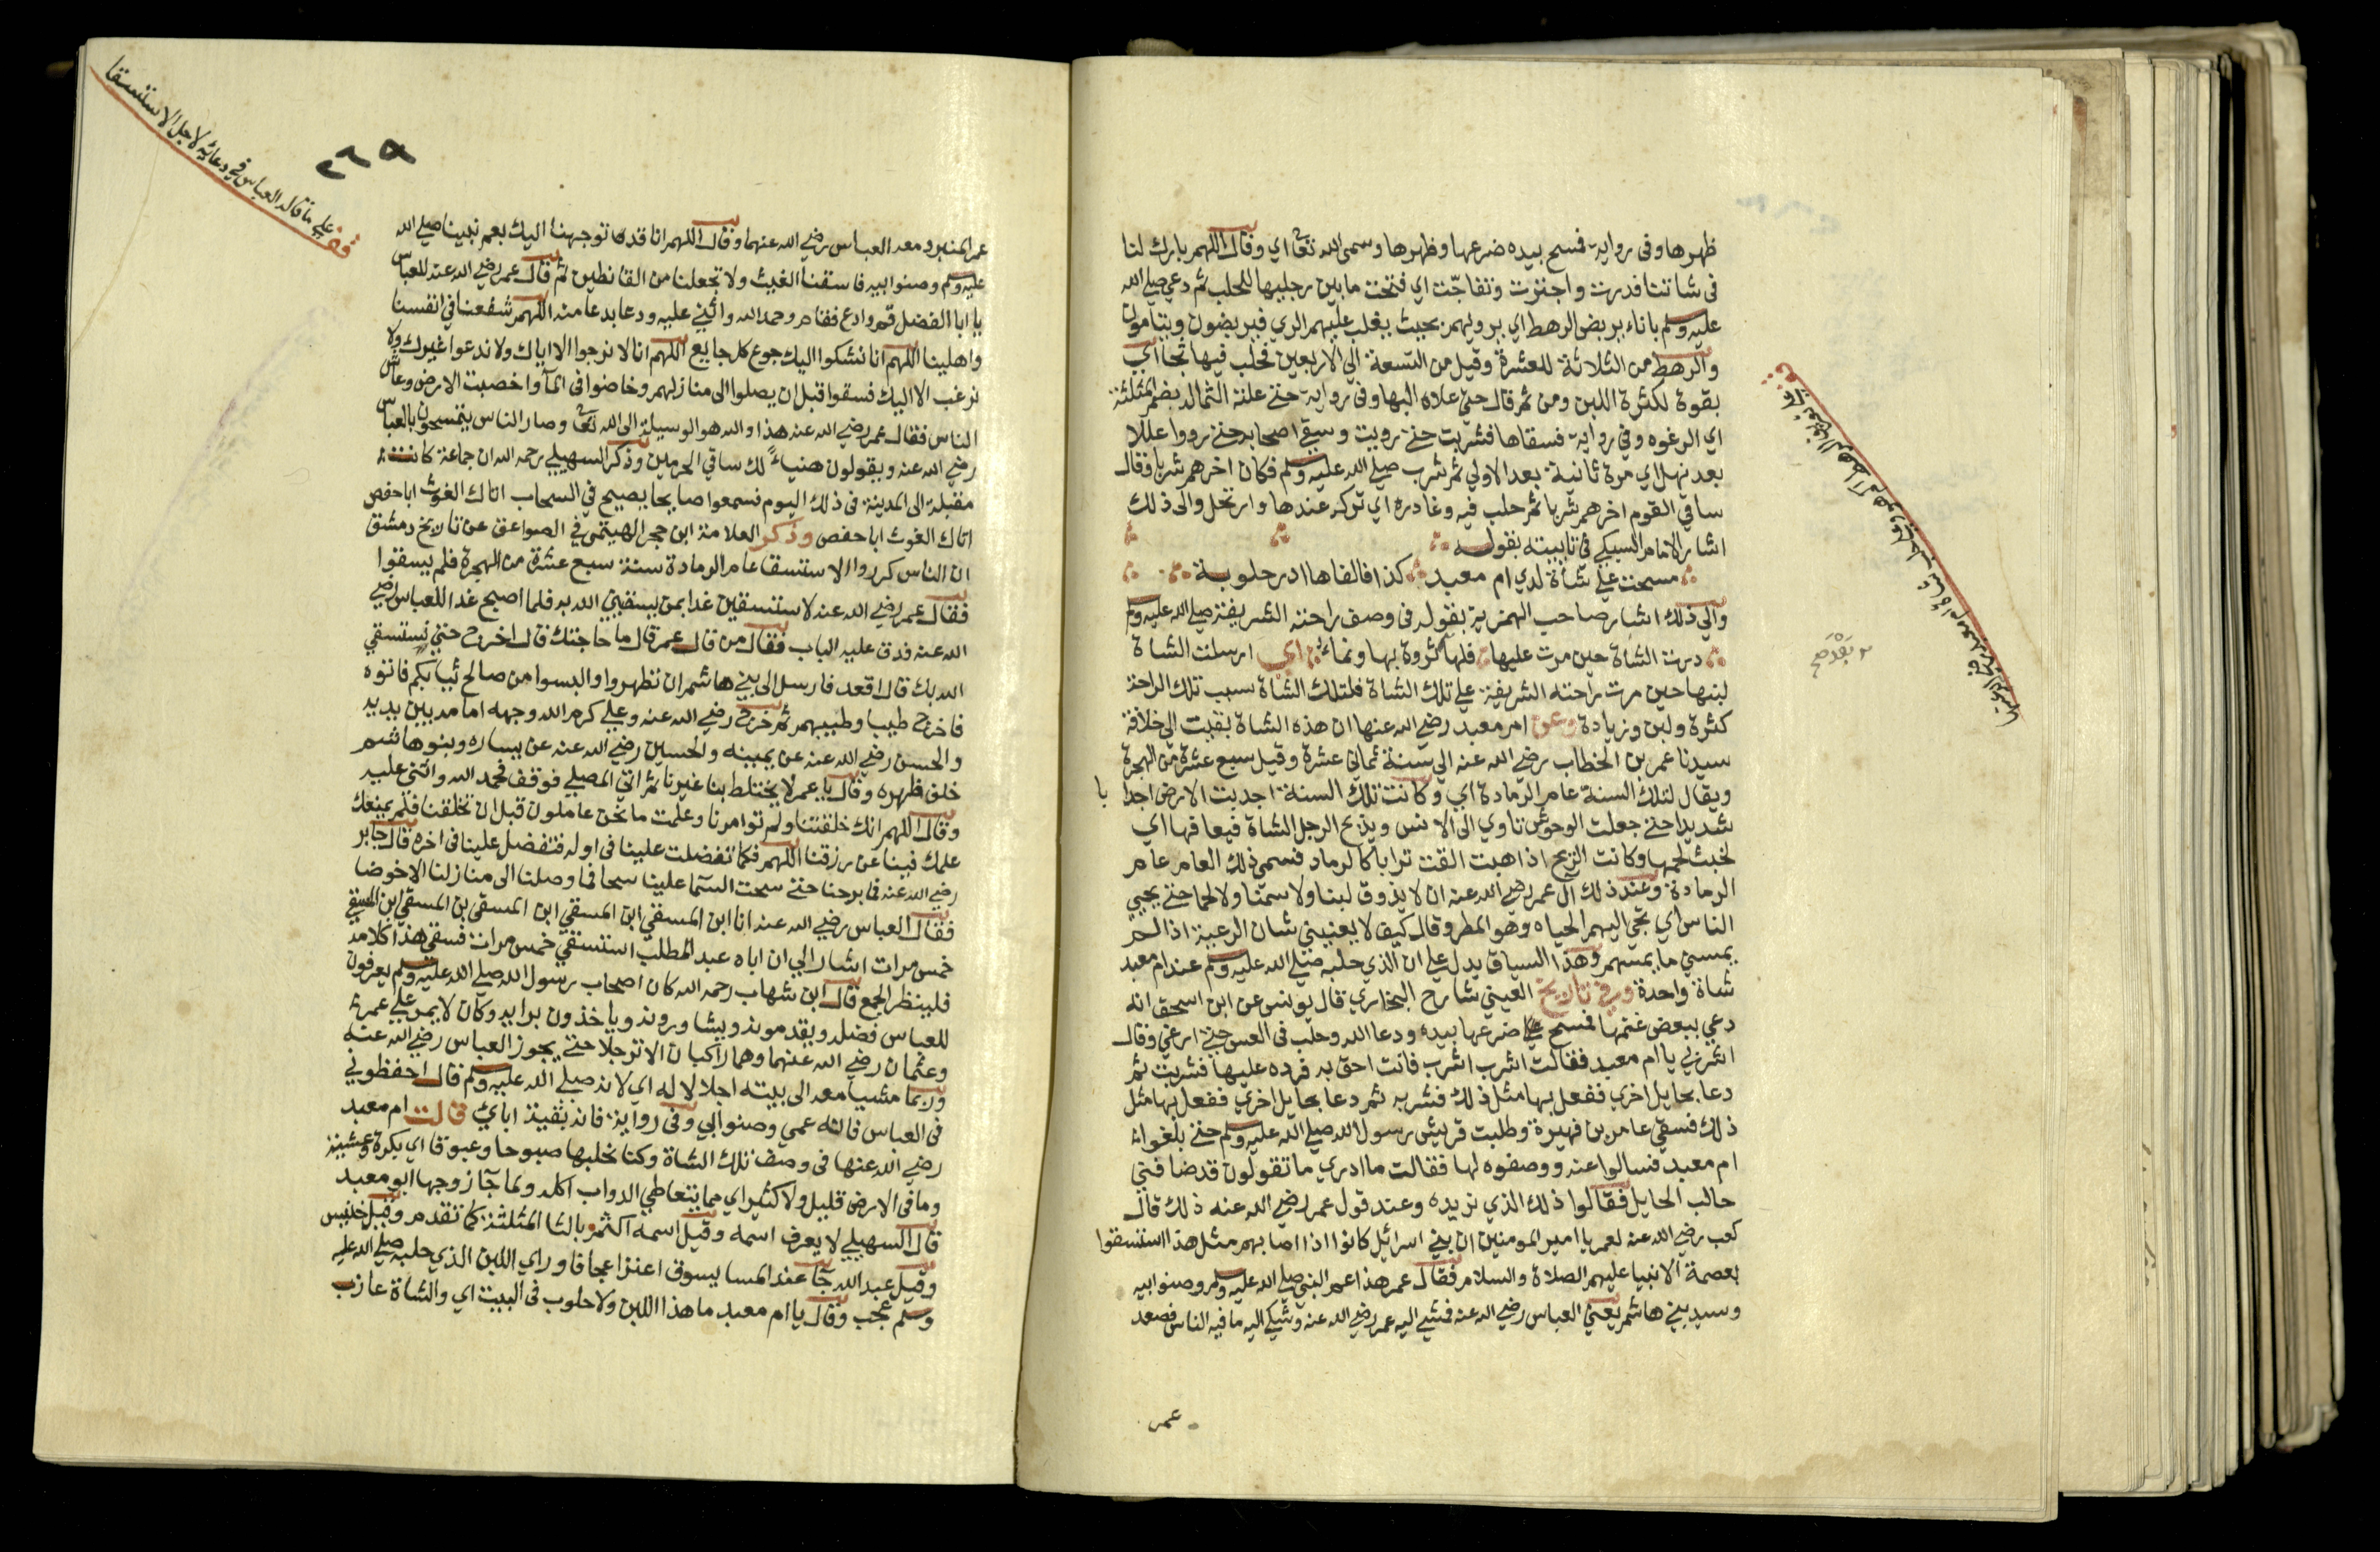 ظهرها وفى رواية فمسح بيده ضرعها وظهرها وسمى الله تعالى اي وقال اللهم بارك لنا
فى شاتنا فدرت واجترت وتفاجّت اي فتحت ما بين رجليها للحلب ثم دعى صلى الله
عليه وسلم باناء يربض الرهط اي يرويهم بحيث يغلب عليهم الري فيربضون وينامون
والرهط من الثلاثة للعشرة وقيل من التسعة الى الاربعين فحلب فيها ثجا اي
بقوة لكثرة اللبن ومن ثم قال حتى علاه البها وفى رواية حتى علته الثمالة بضم المثلثة
اي الرغوه وفي رواية فسقاها فشربت حتى رويت وسقى اصحابه حتى رووا عللا
بعد نهل اي مرة ثانية بعد الاولي ثم شرب صلى الله عليه وسلم فكان اخرهم شربا وقال
ساقي القوم اخرهم شربا ثم حلب فيه وغادره اي تركه عندها وارتحل والى ذلك
اشار الامام السبكي في تاييته بقوله
مسحت على شاة لدي ام معبد كذا فالفاها ادر حلوبة
والى ذلك اشار صاحب الهمزية بقوله فى وصف راحته الشريفة صلى الله عليه وسلم
درت الشاة حين مرت عليها فلها ثروة بها ونماء اي ارسلت الشاة
لبنها حين مرت راحته الشريفة على تلك الشاة فلتلك الشاة بسبب تلك الراحة
كثرة ولبن وزيادة وعن ام معبد رضي الله عنها ان هذه الشاة بقيت الى خلافة
سيدنا عمر بن الخطاب رضي الله عنه الى سنة ثمانى عشرة وقيل سبع عشرة من الهجرة
ويقال لتلك السنة عام الرمادة اي وكانت تلك السنة اجدبت الارض اجدا با
شديدا حتى جعلت الوحوش تاوي الى الانس ويذبح الرجل الشاة فيعافها اي
لخبث لحمها وكانت الريح اذا هبت القت ترابا كالرماد فسمى ذلك العام عام
الرمادة وعند ذلك الى عمر رضي الله عنه ان لا يذوق لبنا ولا سمنا ولا لحما حتى يحيى
الناس اي يجي اليهم الحياه وهو المطر وقال كيف لا يعنيني شان الرعية اذا لم
يمسني ما يمسهم وهذا السياق يدل على ان الذي حلبه صلى الله عليه وسلم عند ام معبد
شاة واحدة وفي تاريخ العيني شارح البخاري قال يونس عن ابن اسحق انه
دعى ببعض غنمها فمسح ضرعها بيده ودعا الله وحلب فى العس حتى ارغى وقال
اشربي يا ام معبد فقالت اشرب اشرب فانت احق به فرده عليها فشربت ثم
دعا بحايل اخري ففعل بها مثل ذلك فشربه ثم دعا بحايل اخري ففعل بها مثل
ذلك فسقى عامر بن فهيرة وطلبت قريش رسول الله صلى الله عليه وسلم حتى بلغوا
ام معبد فسالوا عنه ووصفوه لها فقالت ما ادري ما تقولون قد ضافني
حالب الحايل فقالوا ذلك الذي نريده وعند قول عمر رضي الله عنه ذلك قال
كعب رضي الله عنه لعمر يا امير المومنين ان بني اسرائيل كانوا اذا اصابهم مثل هذا استسقوا
بعصمة الانبيا عليهم الصلاة والسلام فقال عمر هذا عم النبي صلى الله عليه وسلم وصنوا ابيه
وسيد بني هاشم يعنى العباس رضي الله عنه فمشى اليه عمر رضي الله عنه وشكى اليه ما فيه الناس فصعد
عمر
٢٦٩
قف على ما قاله العباس في دعائه لاجل الاستسقا
عمر المنبر ومعه العباس رضي الله عنهما وقال اللهم انا قد توجهنا اليك بعم نبينا صلى الله
عليه وسلم وصنوا ابيه فاسقنا الغيث ولا تجعلنا من القانطين ثم قال عمر رضي الله عنه للعباس
يا ابا الفضل قم وادع فقام وحمد الله واثنى عليه ودعا بدعا منه اللهم شفعنا في انفسنا
واهلينا اللهم انا نشكوا اليك جوع كل جايع اللهم انا لا نرجوا الا اياك ولا ندعوا غيرك ولا
نرغب الا اليك فسقوا قبل ان يصلوا الى منازلهم وخاضوا فى المآ واخصبت الارض وعاش
الناس فقال عمر رضي الله عنه هذا والله هو الوسيلة الى الله تعالى وصار الناس يتمسحون بالعباس
رضي الله عنه ويقولون هنياءً لك ساقي الحرمين وذكر السهيلي رحمه الله ان جماعة كانت
مقبلة الى المدينة فى ذلك اليوم فسمعوا صايحا يصيح في السحاب اتاك الغوث ابا حفص
اتاك الغوث ابا حفص وذكر العلامة ابن حجر الهيتمى في الصواعق عن تاريخ دمشق
ان الناس كرروا الاستسقا عام الرمادة سنة سبع عشرة من الهجرة فلم يسقوا
فقال عمر رضي الله عنه لاستسقين غدا بمن يسقينى الله به فلما اصبح غدا للعباس رضي
الله عنه فدق عليه الباب فقال من قال عمر قال ما حاجتك قال اخرج حتى نستسقي
الله بك قال اقعد فارسل الى بنى هاشم ان تطهروا والبسوا من صالح ثيابكم فاتوه
فاخرج طيبا وطيبهم ثم خرج رضي الله عنه وعلي كرم الله وجهه امامه بين يديه
والحسن رضي الله عنه عن يمينه والحسين رضي الله عنه عن يساره وبنو هاشم
خلف ظهره وقال يا عمر لا يختلط بنا غيرنا ثم اتي المصلي فوقف فحمد الله واثنى عليه
وقال اللهم انك خلقتنا ولم توامرنا وعلمت ما نحن عاملون قبل ان تخلقنا فلم يمنعك
علمك فينا عن رزقنا اللهم فكما تفضلت علينا فى اوله فتفضل علينا فى اخره قال جابر
رضي الله عنه فما برحنا حتى سحت السمآ علينا سحا فما وصلنا الى منازلنا الا خوضا
فقال العباس رضي الله عنه انا ابن المسقي ابن المسقي ابن المسقي بن المسقي ابن المسقي
خمس مرات اشار الى ان اباه عبد المطلب استسقي خمس مرات فسقى هذا كلامه
فلينظر الجمع قال ابن شهاب رحمه الله كان اصحاب رسول الله صلى الله عليه وسلم يعرفون
للعباس فضله ويقدمونه ويشاورونه وياخذون برايه وكان لا يمر على عمر
وعثمان رضي الله عنهما وهما راكبان الا ترجلا حتى يجوز العباس رضي الله عنه
وربما مشيا معه الى بيته اجلالا له اي لانه صلى الله عليه وسلم قال احفظوني
فى العباس فانه عمي وصنوا ابي وفى رواية فانه بقية اباي قالت ام معبد
رضي الله عنها فى وصف تلك الشاة وكنا نحلبها صبوحا وغبوقا اي بكرة وعشية
وما فى الارض قليل ولا كثير اي مما يتعاطي الدواب اكله ولما جآ زوجها ابو معبد
قال السهيلي لا يعرف اسمه وقيل اسمه اكثم بالثا المثلثة كما تقدم وقيل خنيس
وقيل عبد الله جآ عند المسا يسوق اعنزا عجافا وراي اللبن الذي حلبه صلى الله عليه
وسلم عجب وقال يا ام معبد ما هذا اللبن ولا حلوب فى البيت اي والشاة عازب